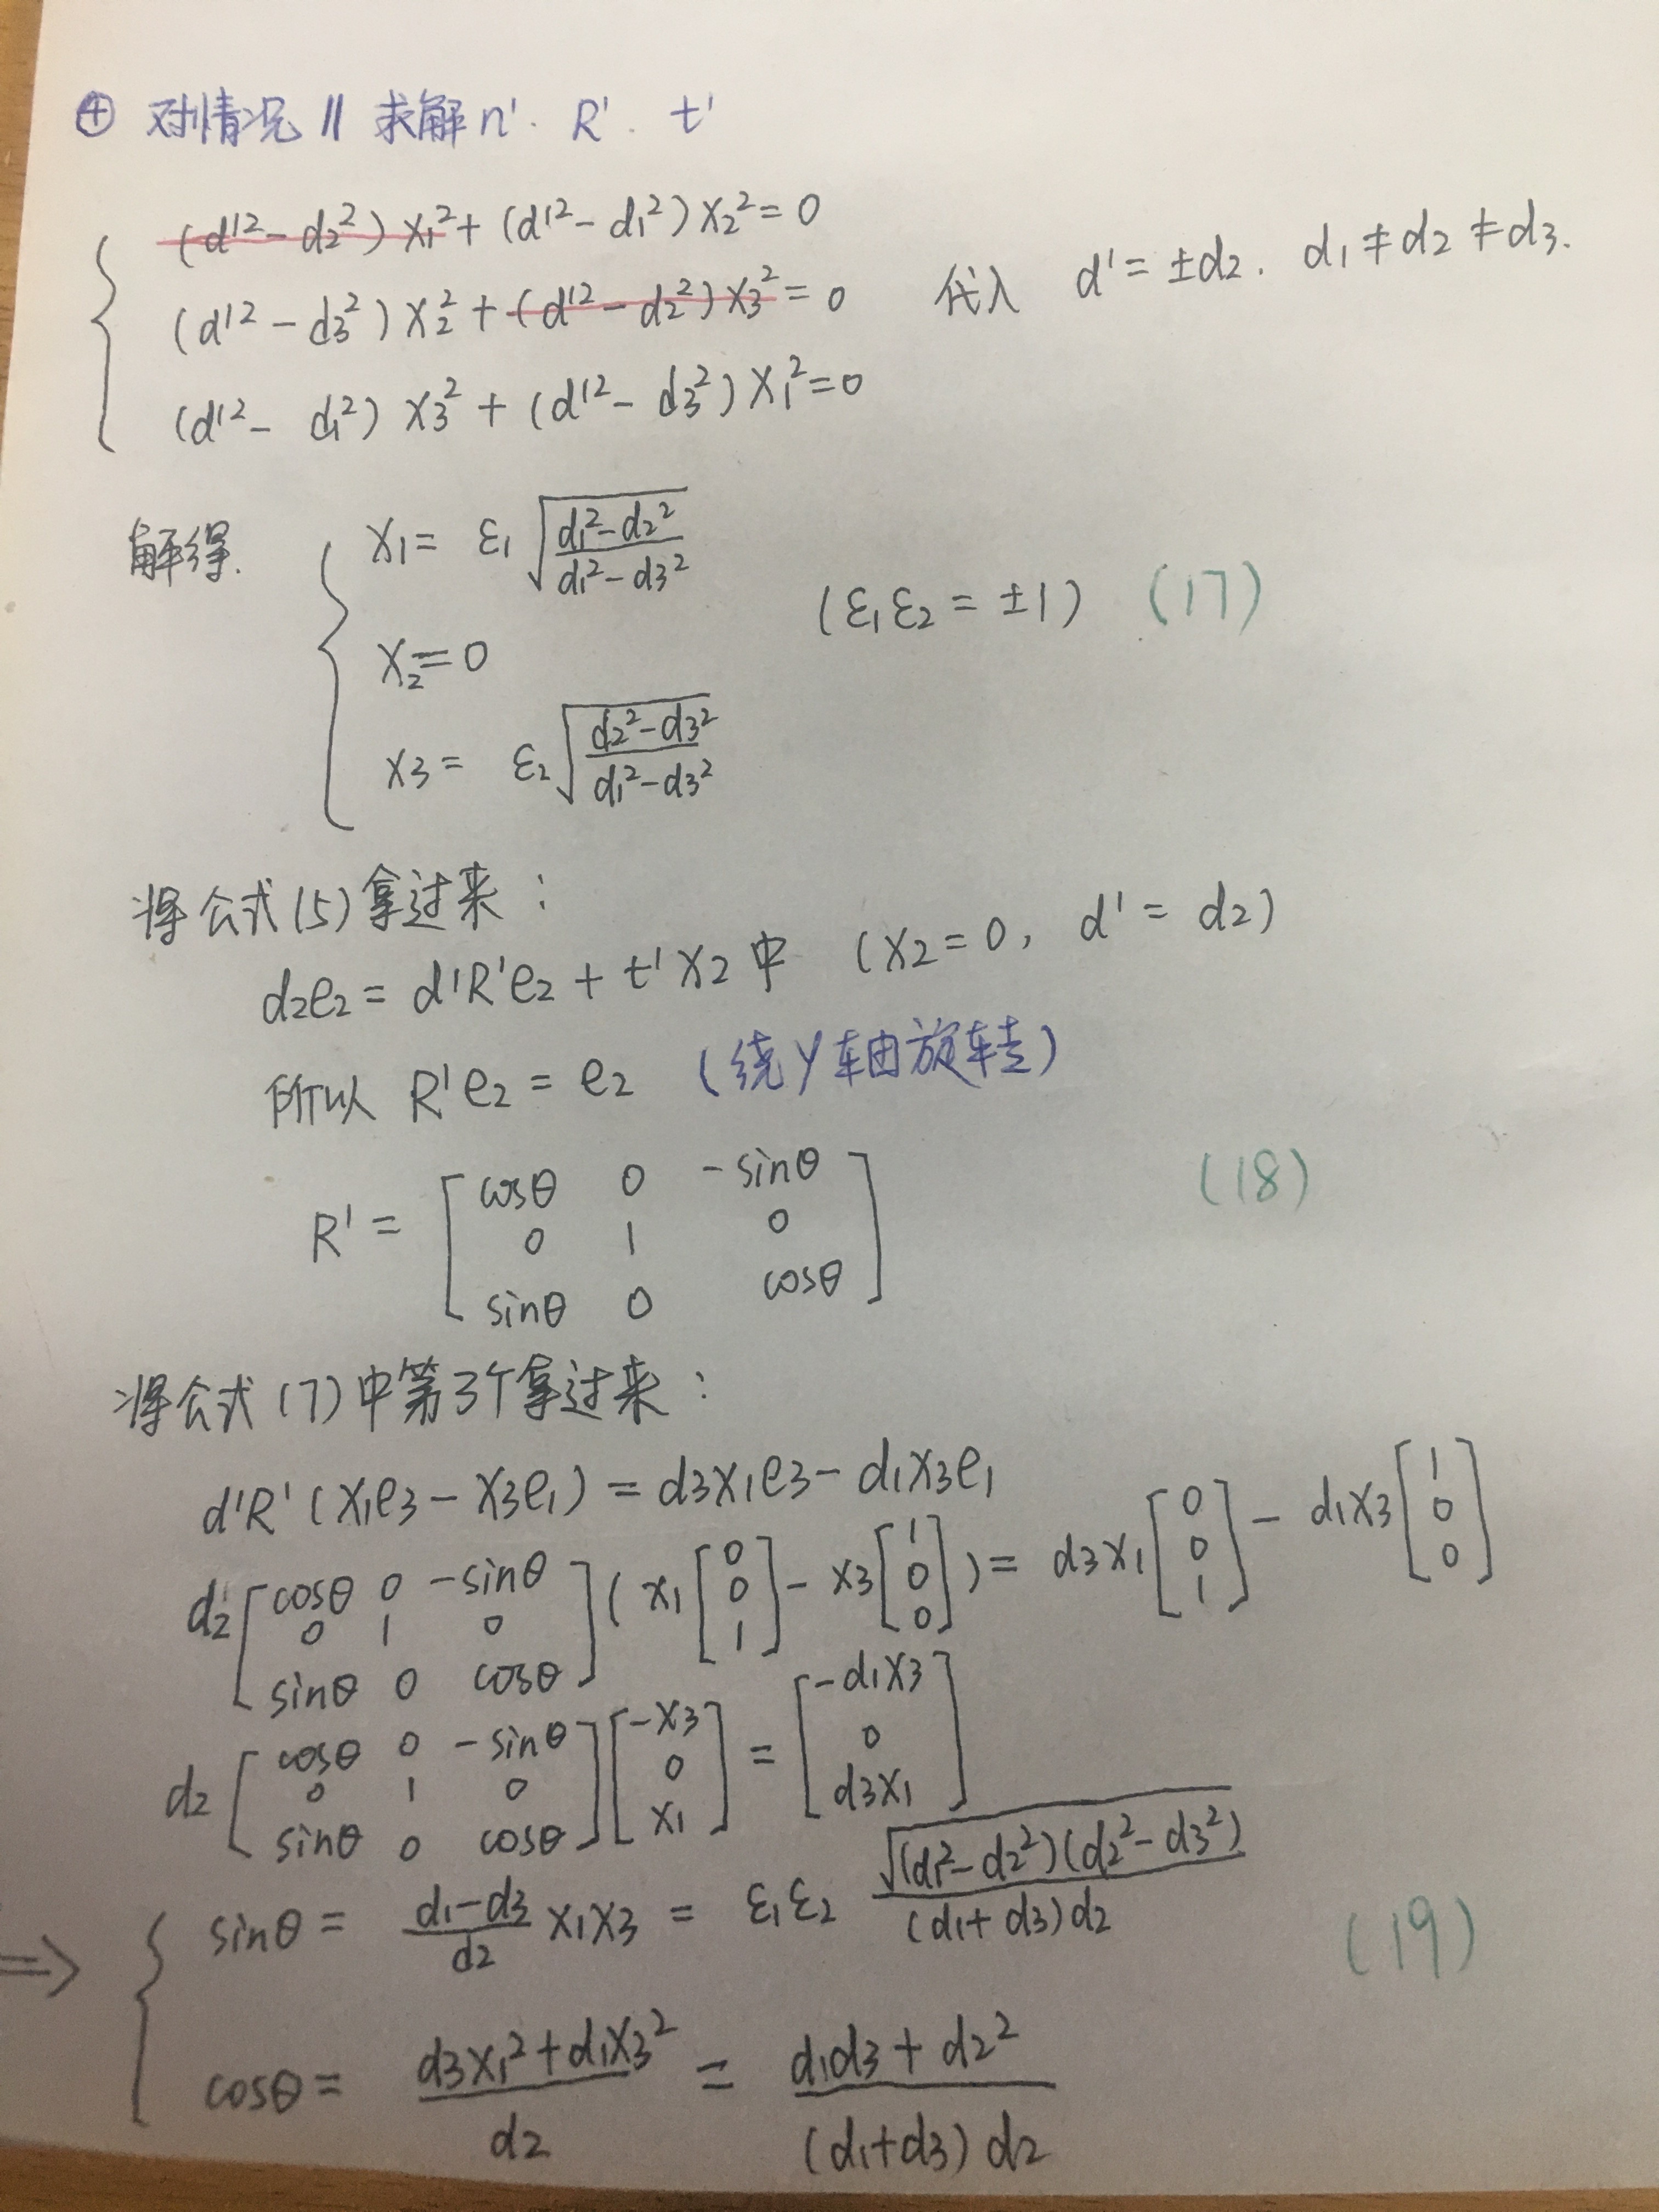 ④ 对情况 11 求解 n'. R'. t'
(d'²-d₂²)x₁²+(d'²-d₁²)x₂²=0
(d'²-d₃²)x₂²+(d'²-d₂²)x₃²=0 代入 d'=±d₂. d₁≠d₂≠d₃.
(d'²-d₁²)x₃²+(d'²-d₃²)x₁²=0
解得. x₁= ε₁ √((d₁²-d₂²)/(d₁²-d₃²))
x₂=0 (ε₁ε₂=±1) (17)
x₃= ε₂ √((d₂²-d₃²)/(d₁²-d₃²))
将公式(5)拿过来:
d₂e₂=d'R'e₂+t'x₂ 中 (x₂=0, d'=d₂)
所以 R'e₂=e₂ (绕y轴旋转)
R'= [cosθ 0 -sinθ; 0 1 0; sinθ 0 cosθ] (18)
将公式(7)中第3个拿过来:
d'R'(x₁e₃-x₃e₁)=d₃x₁e₃-d₁x₃e₁
d₂' [cosθ 0 -sinθ; 0 1 0; sinθ 0 cosθ] (x₁[0; 0; 1]-x₃[1; 0; 0])= d₃x₁[0; 0; 1]-d₁x₃[1; 0; 0]
d₂ [cosθ 0 -sinθ; 0 1 0; sinθ 0 cosθ] [-x₃; 0; x₁]=[-d₁x₃; 0; d₃x₁]
⇒ sinθ= (d₁-d₃)/d₂ x₁x₃ = ε₁ε₂ √((d₁²-d₂²)(d₂²-d₃²))/((d₁+d₃)d₂) (19)
cosθ= (d₃x₁²+d₁x₃²)/d₂ = (d₁d₃+d₂²)/((d₁+d₃)d₂)